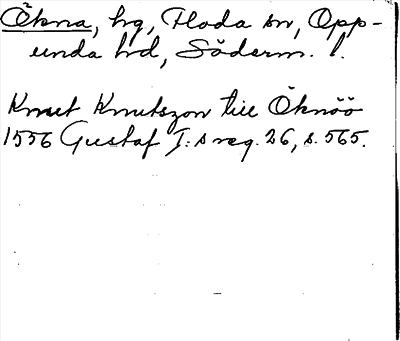 Ökna, hg, Floda sn, Opp-
unda hd, Söderm. l.
Knut Knutszon till Öknöö
1556 Gustaf I:s reg. 26, s. 565.